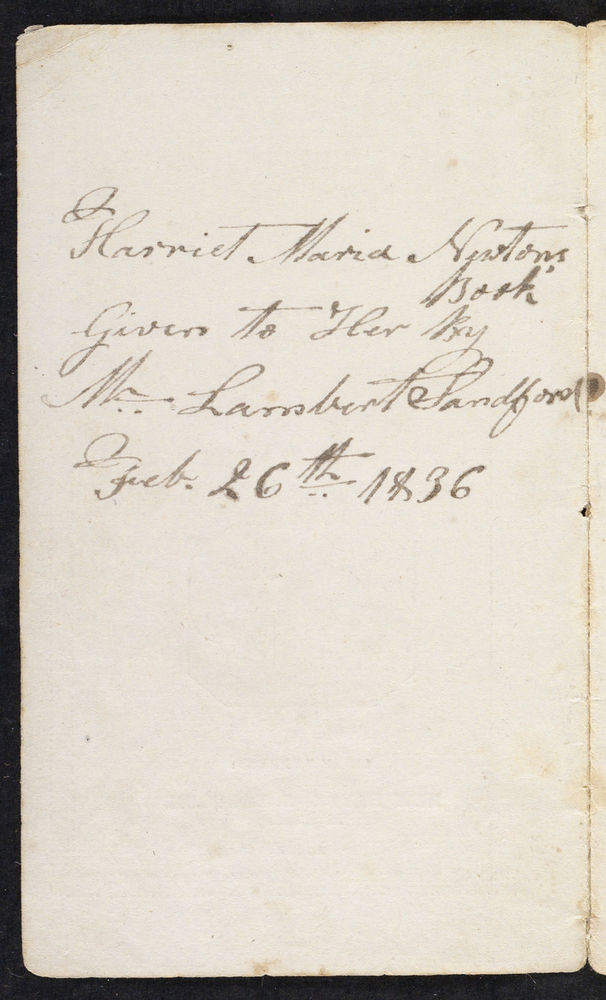 Harriet Maria Newtons
Book
Given to Her By
Mr. Lambert Sandford
Feb. 26th 1836